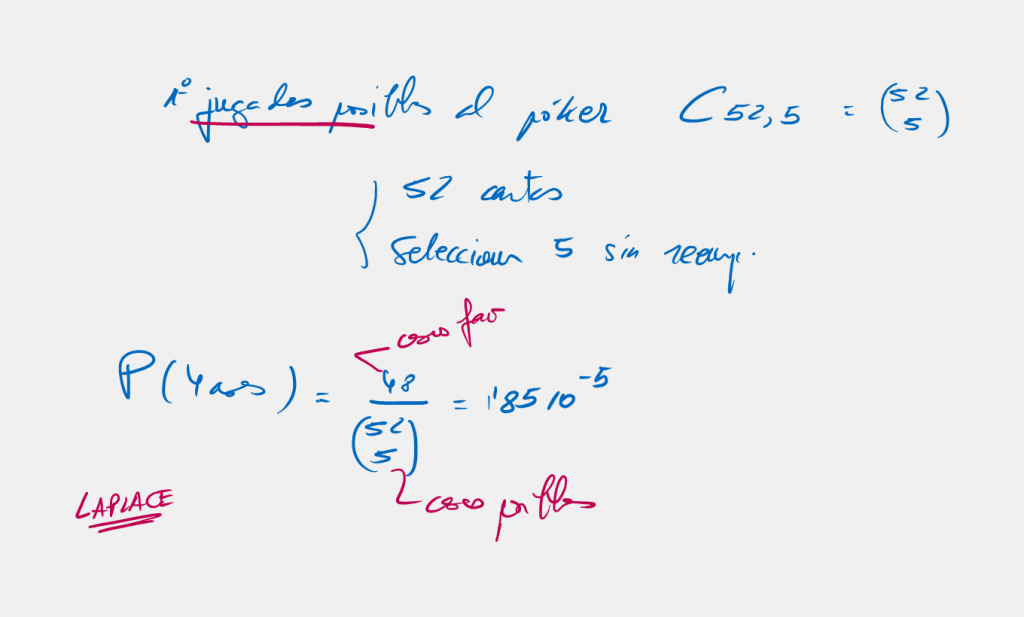 nº jugadas posibles al póker C52,5 = (52 5)
52 cartas
Seleccionar 5 sin reemp.
casos fav
P(4 ases) = 48 / (52 5) = 1'85 10^-5
casos posibles
LAPLACE